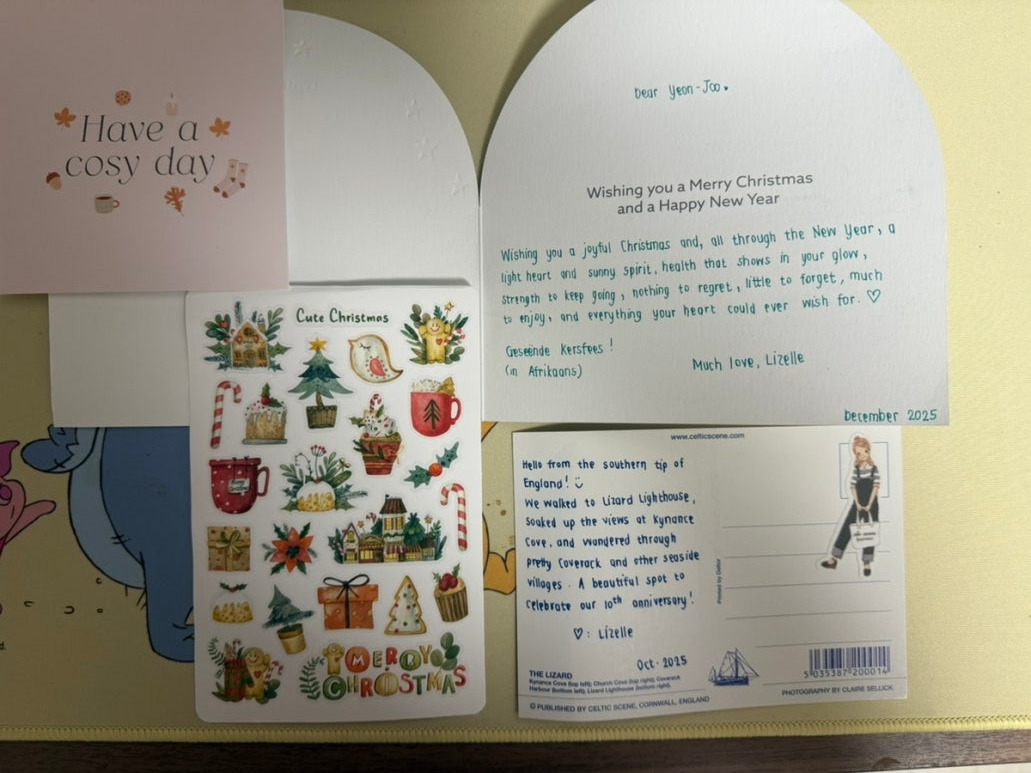 Have a
cosy day
Dear Yeon-Joo.
Wishing you a Merry Christmas
and a Happy New Year
Wishing you a joyful Christmas and, all through the New Year, a
light heart and sunny spirit, health that shows in your glow,
strength to keep going, nothing to regret, little to forget, much
to enjoy, and everything your heart could ever wish for. ♡
Geseënde Kersfees!
(in Afrikaans)
Much love, Lizelle
December 2025
Cute Christmas
MERRY
CHRISTMAS
www.celticscene.com
Hello from the southern tip of
England! ü
We walked to Lizard Lighthouse,
soaked up the views at Kynance
Cove, and wandered through
pretty Coverack and other seaside
villages. A beautiful spot to
celebrate our 10th anniversary!
♡: Lizelle
Oct. 2025
THE LIZARD
Kynance Cove (top left); Church Cove (top right), Coverack
Harbour (bottom left), Lizard Lighthouse (bottom right).
© PUBLISHED BY CELTIC SCENE, CORNWALL, ENGLAND
5 035387 200014
PHOTOGRAPHY BY CLAIRE SELLICK